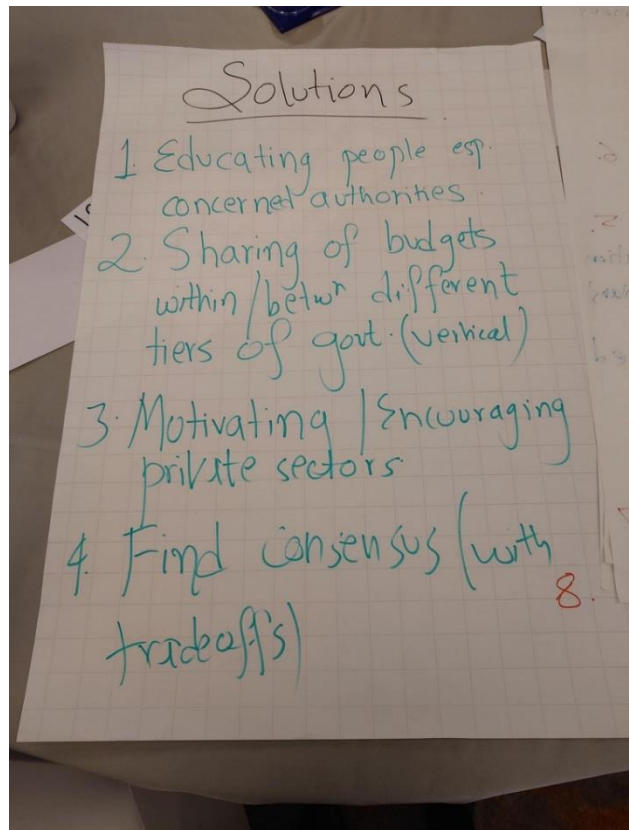 Solutions
1. Educating people esp.
concernet authorities.
2. Sharing of budgets
within/betwn different
tiers of govt. (vertical)
3. Motivating / Encouraging
private sectors
4. Find consensus (with
8.
tradeoffs)